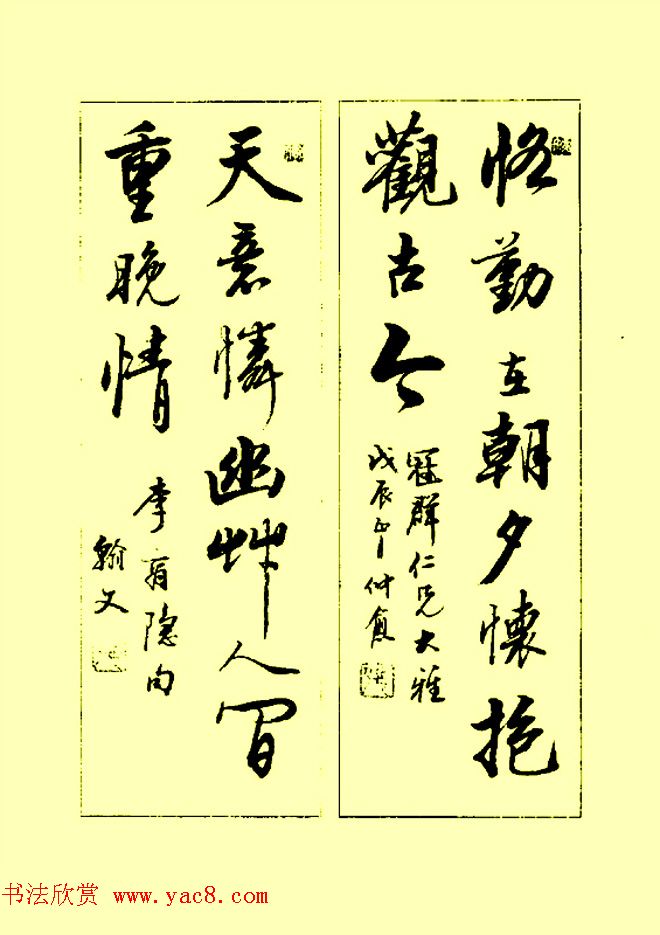 恪勤在朝夕懷抱
觀古今
冠群仁兄大雅
戊辰年仲
天意憐幽艸人間
重晚情
李商隐句
翰文
书法欣赏 www.yac8.com